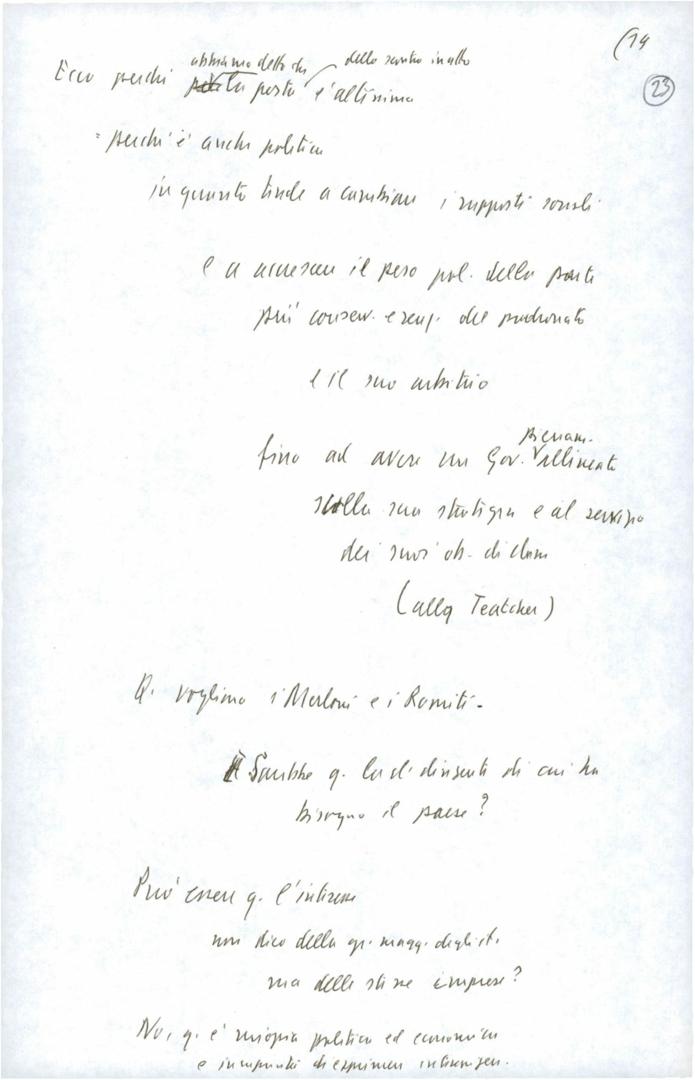 (14
23
abbiamo detto che dello scontro in atto
Ecco perché la posta è altissima
perché è anche politica
in quanto tende a cambiare i rapporti sociali
e a accrescere il peso pol. della parte
più conserv. e reaz. del padronato
e il suo arbitrio
pienam.
fino ad avere un Gov. allineato
sulla sua strategia e al servizio
dei suoi ob. di classe
(alla Teatcher)
Q. vogliono i Merloni e i Romiti-
Sarebbe q. la cl. dirigente di cui ha
bisogno il paese?
Può essere q. l'interesse
non dico della gr. magg. degli it.
ma delle stesse imprese?
No, q. è miopia politica ed economica
e incapacità di esprimere interessi gen.